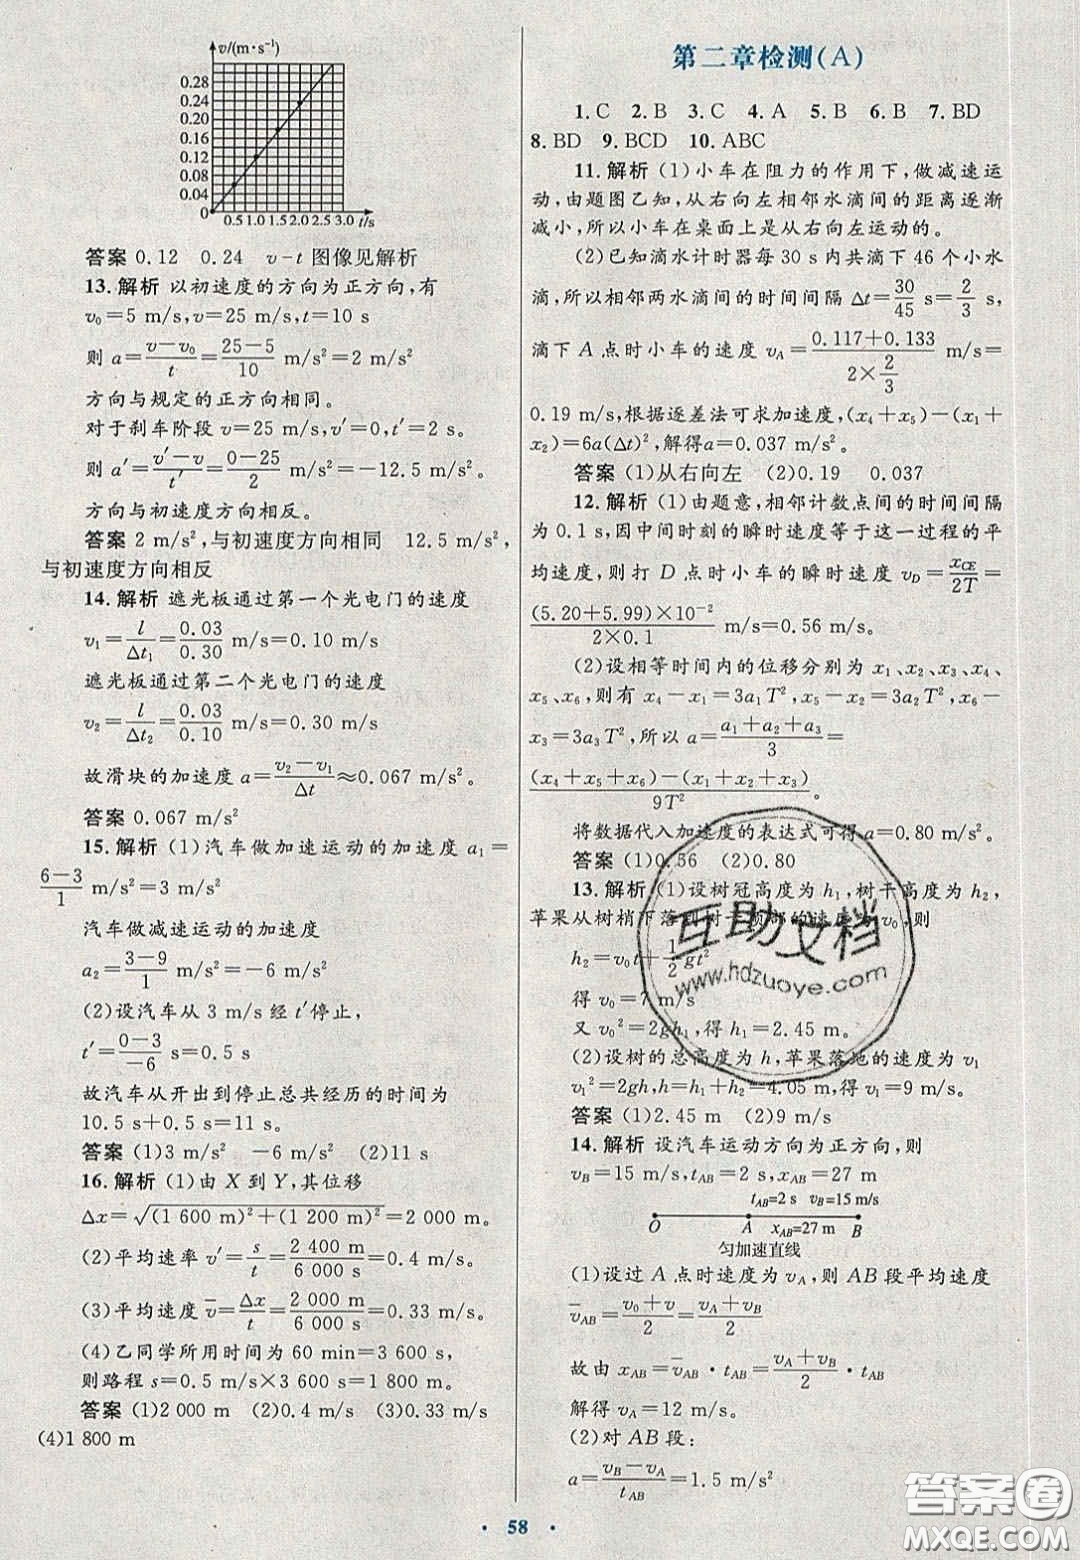 v/(m·s⁻¹)
0.28
0.24
0.20
0.16
0.12
0.08
0.04
0
0.5 1.0 1.5 2.0 2.5 3.0 t/s
答案 0.12 0.24 v-t图像见解析
13.解析 以初速度的方向为正方向,有
v₀=5 m/s,v=25 m/s,t=10 s
则 a=(v-v₀)/t=(25-5)/10 m/s²=2 m/s²
方向与规定的正方向相同。
对于刹车阶段 v=25 m/s,v′=0,t′=2 s。
则 a′=(v′-v)/t′=(0-25)/2 m/s²=-12.5 m/s²。
方向与初速度方向相反。
答案 2 m/s²,与初速度方向相同 12.5 m/s²,
与初速度方向相反
14.解析 遮光板通过第一个光电门的速度
v₁=l/Δt₁=0.03/0.30 m/s=0.10 m/s
遮光板通过第二个光电门的速度
v₂=l/Δt₂=0.03/0.10 m/s=0.30 m/s
故滑块的加速度 a=(v₂-v₁)/Δt≈0.067 m/s²。
答案 0.067 m/s²
15.解析 (1)汽车做加速运动的加速度 a₁=
(6-3)/1 m/s²=3 m/s²
汽车做减速运动的加速度
a₂=(3-9)/1 m/s²=-6 m/s²
(2)设汽车从 3 m/s 经 t′停止,
t′=(0-3)/(-6) s=0.5 s
故汽车从开出到停止总共经历的时间为
10.5 s+0.5 s=11 s。
答案 (1)3 m/s² -6 m/s² (2)11 s
16.解析 (1)由 X 到 Y,其位移
Δx=√((1 600 m)²+(1 200 m)²)=2 000 m。
(2)平均速率 v′=s/t=2 400 m/6 000 s=0.4 m/s。
(3)平均速度 v̄=Δx/t=2 000 m/6 000 s=0.33 m/s。
(4)乙同学所用时间为 60 min=3 600 s,
则路程 s=0.5 m/s×3 600 s=1 800 m。
答案 (1)2 000 m (2)0.4 m/s (3)0.33 m/s
(4)1 800 m
第二章检测(A)
1.C 2.B 3.C 4.A 5.B 6.B 7.BD
8.BD 9.BCD 10.ABC
11.解析 (1)小车在阻力的作用下,做减速运
动,由题图乙知,从右向左相邻水滴间的距离逐渐
减小,所以小车在桌面上是从右向左运动的。
(2)已知滴水计时器每 30 s 内共滴下 46 个小水
滴,所以相邻两水滴间的时间间隔 Δt=30/45 s=2/3 s,
滴下 A 点时小车的速度 v_A=(0.117+0.133)/(2×2/3) m/s=
0.19 m/s,根据逐差法可求加速度,(x₄+x₅)-(x₁+
x₂)=6a(Δt)²,解得a=0.037 m/s²。
答案 (1)从右向左 (2)0.19 0.037
12.解析 (1)由题意,相邻计数点间的时间间隔
为 0.1 s,因中间时刻的瞬时速度等于这一过程的平
均速度,则打 D 点时小车的瞬时速度 v_D=x_CE/2T=
(5.20+5.99)×10⁻²/(2×0.1) m/s=0.56 m/s。
(2)设相等时间内的位移分别为 x₁、x₂、x₃、x₄、
x₅、x₆,则有 x₄-x₁=3a₁T²,x₅-x₂=3a₂T²,x₆-
x₃=3a₃T²,所以 a=(a₁+a₂+a₃)/3=
((x₄+x₅+x₆)-(x₁+x₂+x₃))/9T²。
将数据代入加速度的表达式可得 a=0.80 m/s²。
答案 (1)0.56 (2)0.80
13.解析 (1)设树冠高度为 h₁,树干高度为 h₂,
苹果从树梢下落到树干顶部的速度为v₀,则
h₂=v₀t+1/2 gt²
得 v₀=7 m/s
又 v₀²=2gh₁,得 h₁=2.45 m。
(2)设树的总高度为 h,苹果落地的速度为 v₁
v₁²=2gh,h=h₁+h₂=4.05 m,得 v₁=9 m/s。
答案 (1)2.45 m (2)9 m/s
14.解析 设汽车运动方向为正方向,则
v_B=15 m/s,t_AB=2 s,x_AB=27 m
t_AB=2 s v_B=15 m/s
O A x_AB=27 m B
匀加速直线
(1)设过 A 点时速度为 v_A,则 AB 段平均速度
v̄_AB=(v₀+v)/2=(v_A+v_B)/2
故由 x_AB=v̄_AB·t_AB=(v_A+v_B)/2·t_AB
解得 v_A=12 m/s。
(2)对 AB 段:
a=(v_B-v_A)/t_AB=1.5 m/s²
· 58 ·
互助文档
www.hdzuoye.com
答案圈
MXQE.COM